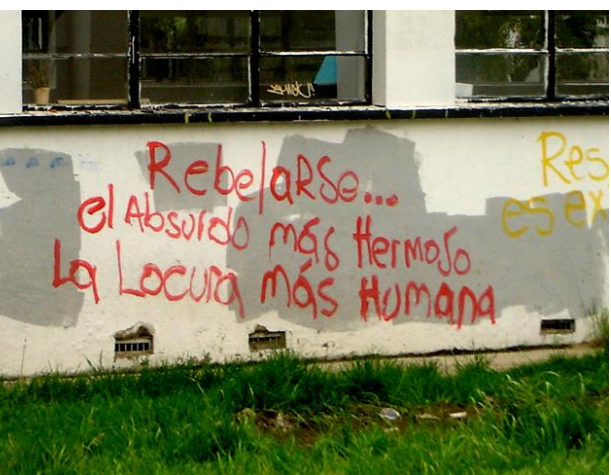 Rebelarse...
el Absurdo más Hermoso
La Locura más Humana
Res
es ex